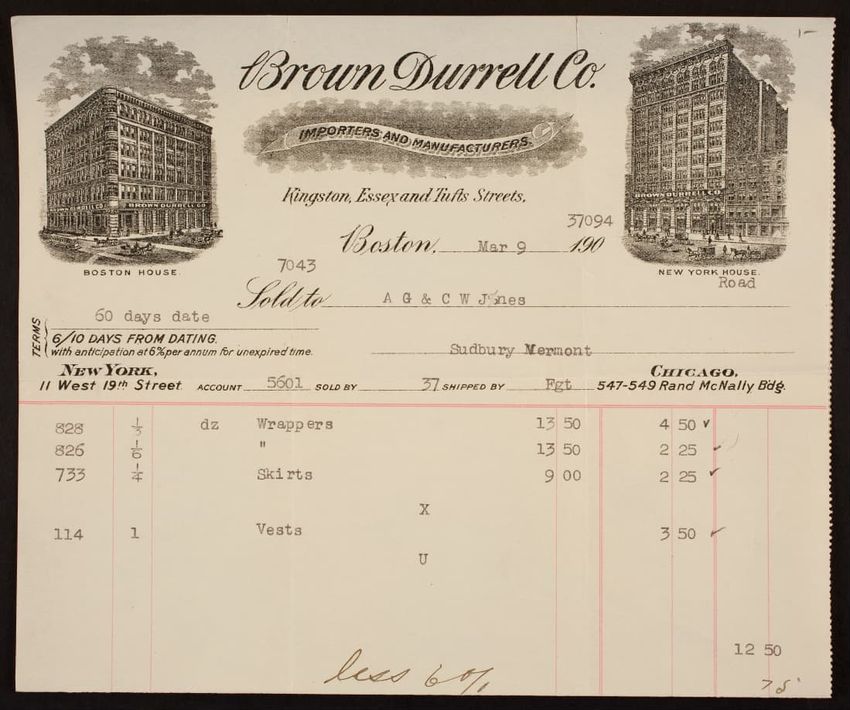 Brown Durrell Co.
IMPORTERS AND MANUFACTURERS.
Kingston, Essex and Tufts Streets,
BROWN DURRELL CO
BROWN DURRELL CO
37094
Boston, Mar 9 190
BOSTON HOUSE.
NEW YORK HOUSE.
7043
Road
Sold to A G & C W Jones
TERMS
60 days date
6/10 DAYS FROM DATING.
with anticipation at 6% per annum for unexpired time.
Sudbury Vermont
NEW YORK,
11 West 19th Street
ACCOUNT 5601 SOLD BY 37 SHIPPED BY Fgt
CHICAGO,
547-549 Rand McNally Bdg.
828 1/3 dz Wrappers 13 50 4 50 ✓
826 1/6 " 13 50 2 25 ✓
733 1/4 Skirts 9 00 2 25 ✓
X
114 1 Vests 3 50 ✓
U
12 50
less 6%
75